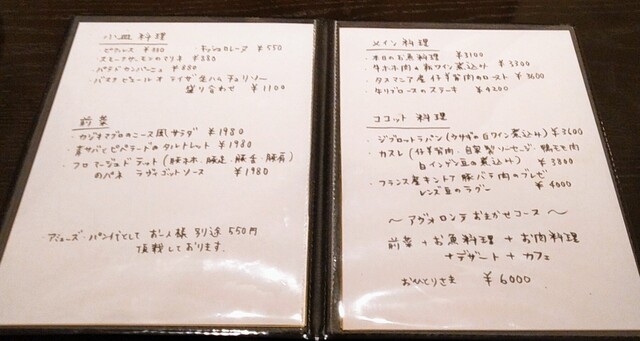 小皿料理
ピクルス ¥330 ・キッシュロレーヌ ¥550
・スモークサーモンのマリネ ¥880
・パテドカンパーニュ ¥880
・バスク ピエールオテイザ 生ハム チョリソー
盛り合わせ ¥1100
前菜
・カジキマグロのニース風サラダ ¥1980
・青サバとピペラードのタルトレット ¥1980
・フロマージュドテット (豚ホホ、豚足、豚舌、豚肩)
のパネ ラヴィゴットソース ¥1980
アミューズ・パン代として お一人様 別途 550円
頂戴しております。
メイン料理
・本日のお魚料理 ¥3100
・牛ホホ肉の赤ワイン煮込み ¥3300
・タスマニア産仔羊肉のロースト ¥3600
・牛リブロースのステーキ ¥4200
ココット料理
・ジブロットラパン (ウサギの白ワイン煮込み) ¥3600
・カスレ (仔羊肩肉、自家製ソーセージ、鴨モモ肉
白インゲン豆の煮込み) ¥3800
・フランス産キントア豚バラ肉のブレゼ
レンズ豆のラグー ¥4000
〜 アヴォロンテ おまかせコース 〜
前菜 + お魚料理 + お肉料理
+ デザート + カフェ
おひとりさま ¥6000